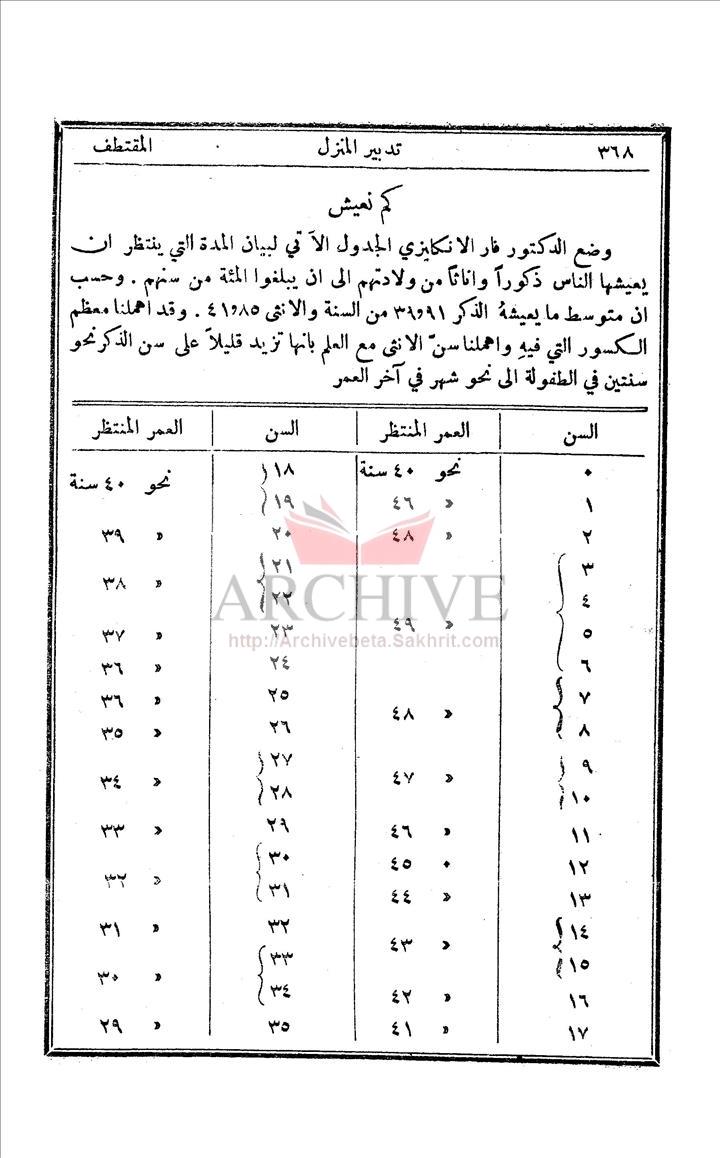 ٣٦٨ تدبير المنزل المقتطف
كم نعيش
وضع الدكتور فار الانكليزي الجدول الآتي لبيان المدة التي ينتظر ان
يعيشها الناس ذكوراً واناثاً من ولادتهم الى ان يبلغوا المئة من سنهم . وحسب
ان متوسط ما يعيشهُ الذكر ٣٩٫٩١ من السنة والانثى ٤١٫٨٥ . وقد اهملنا معظم
الكسور التي فيهِ واهملنا سنّ الانثى مع العلم بانها تزيد قليلاً على سن الذكر نحو
سنتين في الطفولة الى نحو شهر في آخر العمر
السن العمر المنتظر السن العمر المنتظر
٠ نحو ٤٠ سنة ١٨
١ » ٤٦ ١٩ نحو ٤٠ سنة
٢ » ٤٨ ٢٠ » ٣٩
٣ ٢١
٤ ٢٢ » ٣٨
٥ » ٤٩ ٢٣ » ٣٧
٦ ٢٤ » ٣٦
٧ ٢٥ » ٣٦
٨ » ٤٨ ٢٦ » ٣٥
٩ ٢٧
١٠ » ٤٧ ٢٨ » ٣٤
١١ » ٤٦ ٢٩ » ٣٣
١٢ » ٤٥ ٣٠
١٣ » ٤٤ ٣١ » ٣٢
١٤ ٣٢ » ٣١
١٥ » ٤٣ ٣٣
١٦ » ٤٢ ٣٤ » ٣٠
١٧ » ٤١ ٣٥ » ٢٩
ARCHIVE
http://Archivebeta.Sakhrit.com